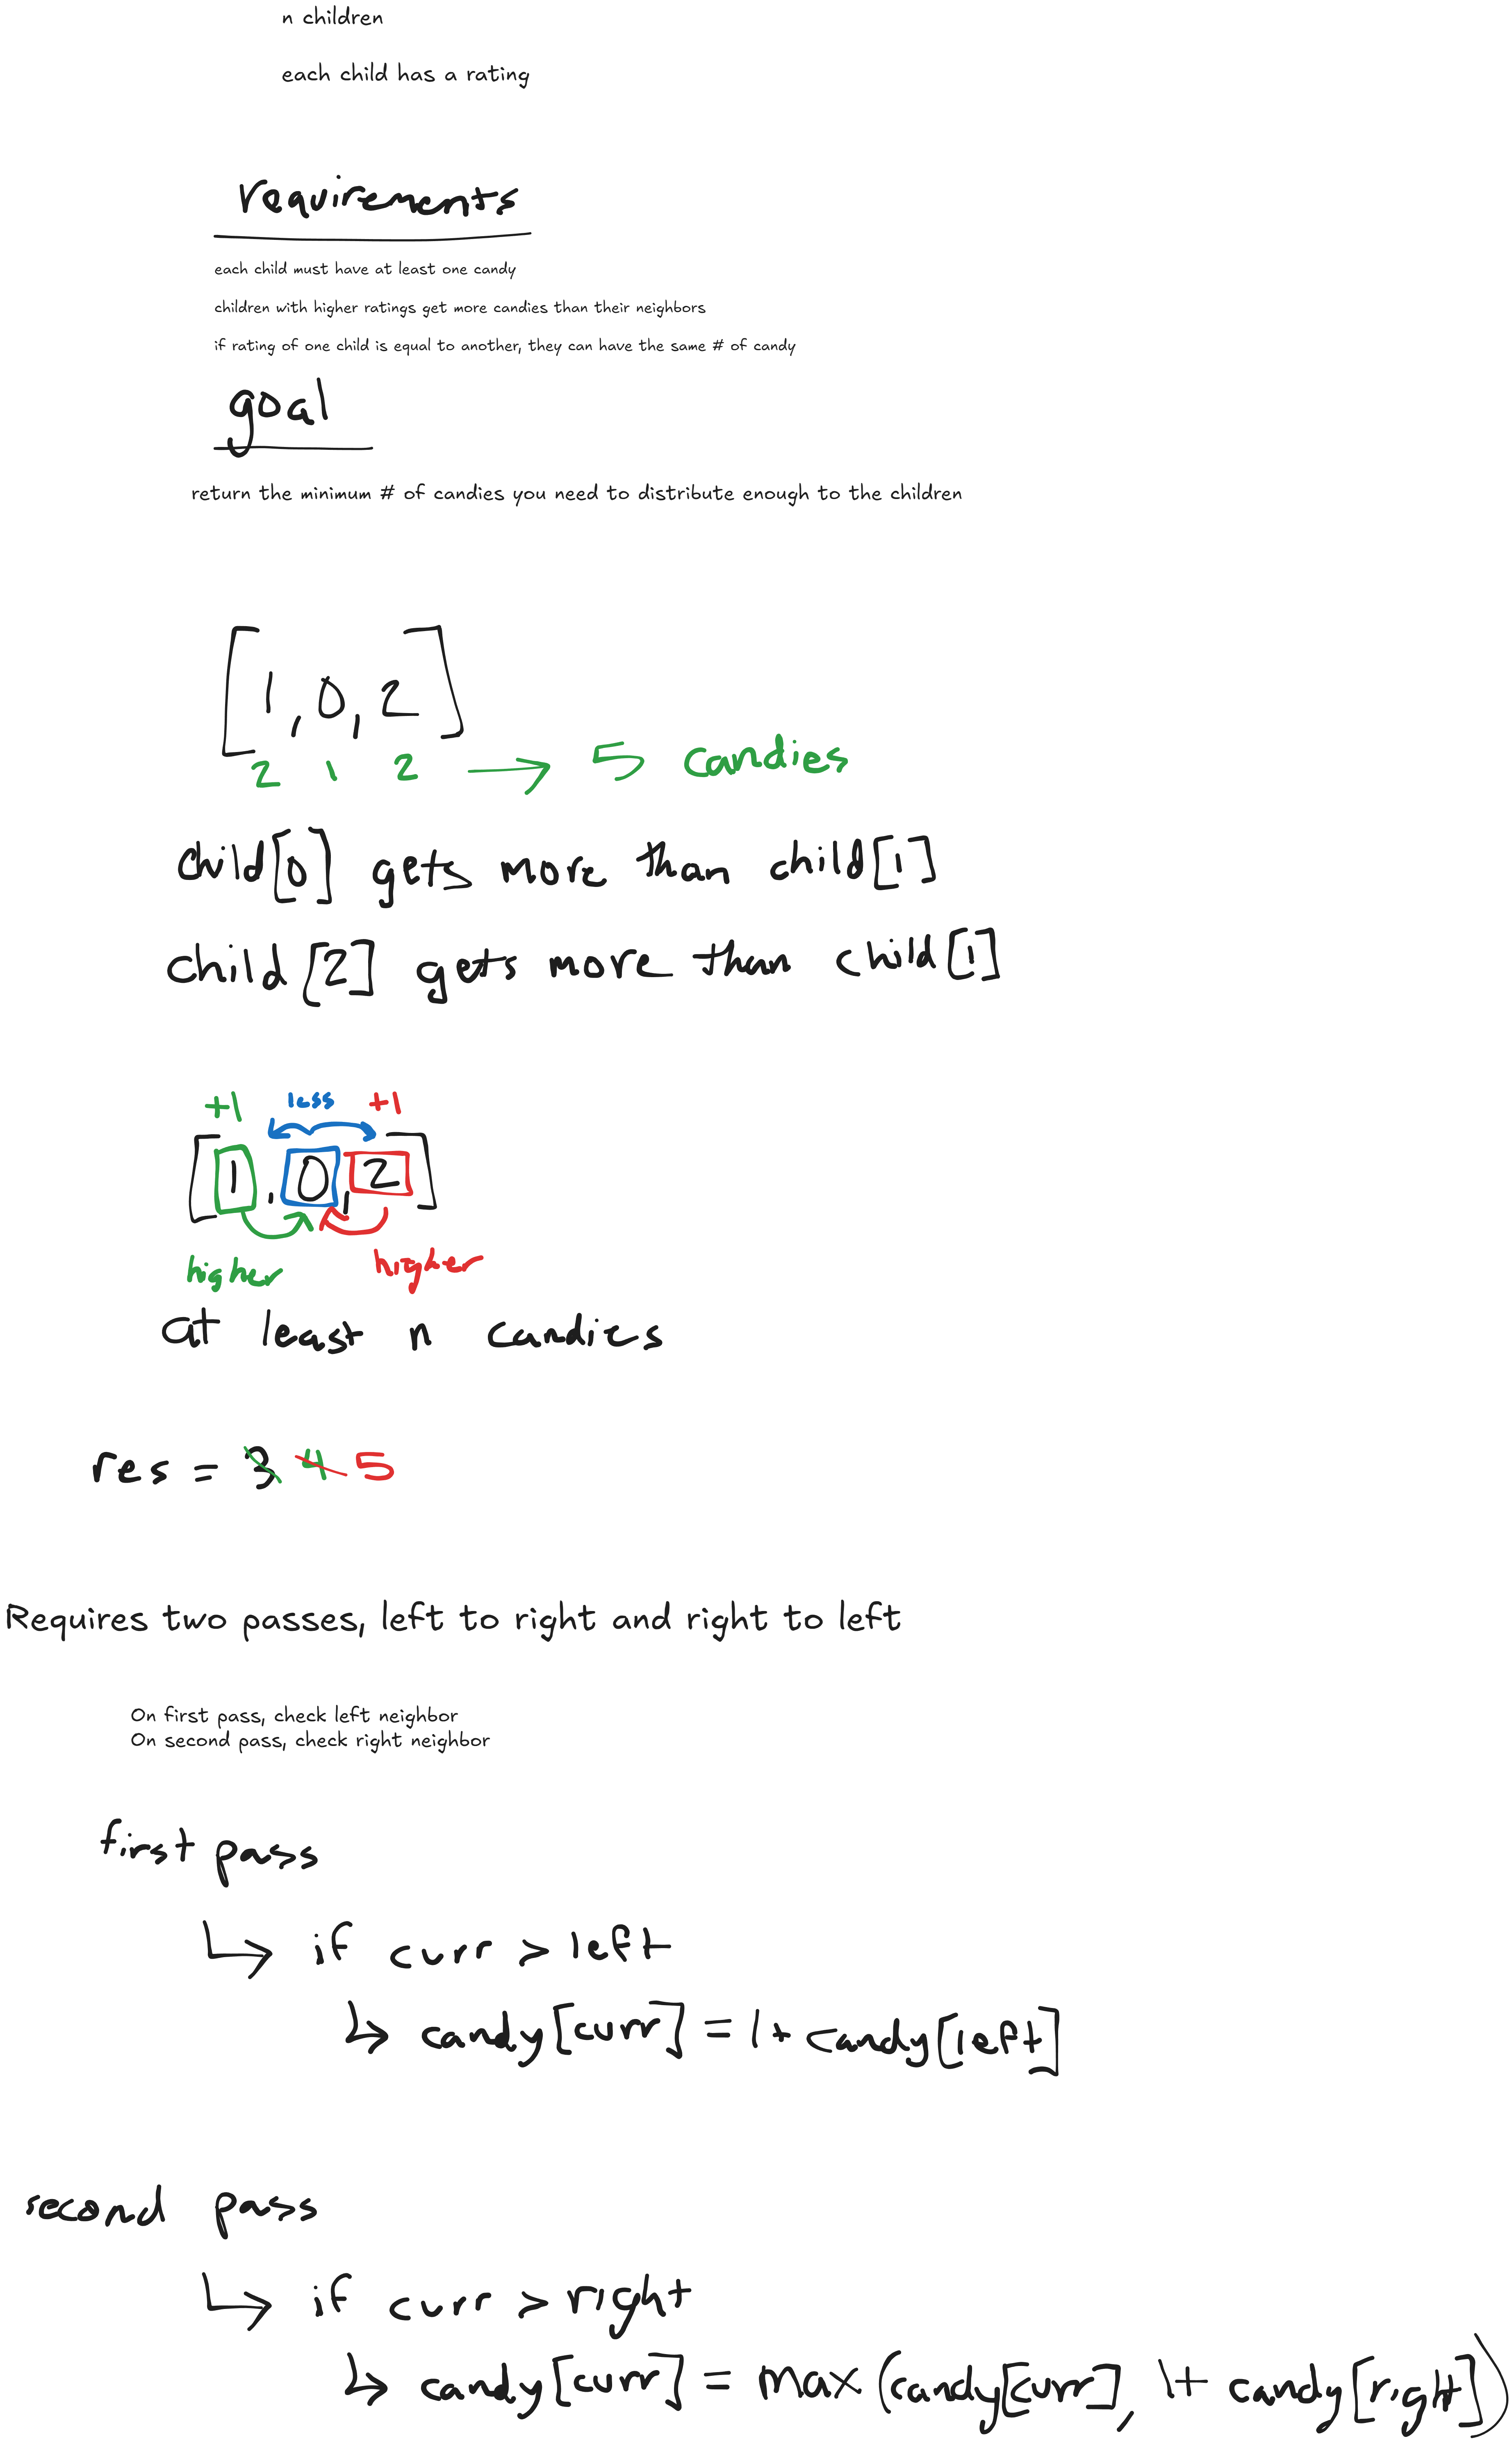 n children
each child has a rating
requirements
each child must have at least one candy
children with higher ratings get more candies than their neighbors
if rating of one child is equal to another, they can have the same # of candy
goal
return the minimum # of candies you need to distribute enough to the children
[1, 0, 2]
2 1 2 → 5 candies
child[0] gets more than child[1]
child[2] gets more than child[1]
+1 less +1
[1, 0, 2]
higher higher
at least n candies
res = 3 4 5
Requires two passes, left to right and right to left
On first pass, check left neighbor
On second pass, check right neighbor
first pass
↳ if curr > left
↳ candy[curr] = 1 + candy[left]
second pass
↳ if curr > right
↳ candy[curr] = max(candy[curr], 1 + candy[right])